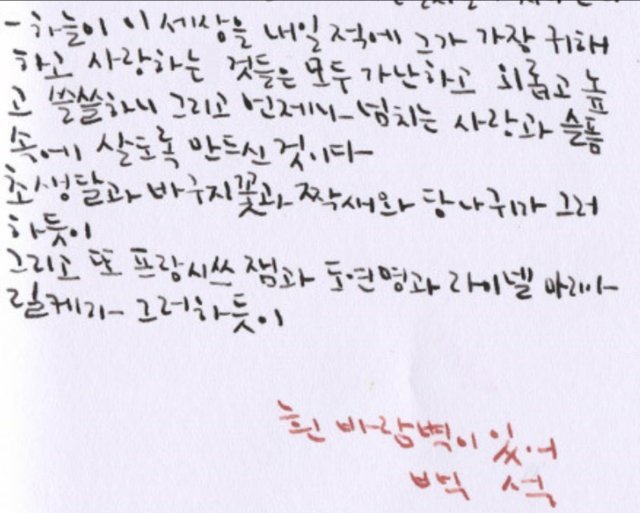 -하늘이 이 세상을 내일 적에 그가 가장 귀해
하고 사랑하는 것들은 모두 가난하고 외롭고 높
고 쓸쓸하니 그리고 언제나 넘치는 사랑과 슬픔
속에 살도록 만드신 것이다
초생달과 바구지꽃과 짝새와 당나귀가 그러
하듯이
그리고 또 프랑시쓰 잼과 도연명과 라이넬 마리아
릴케가 그러하듯이
흰 바람벽이 있어
백 석